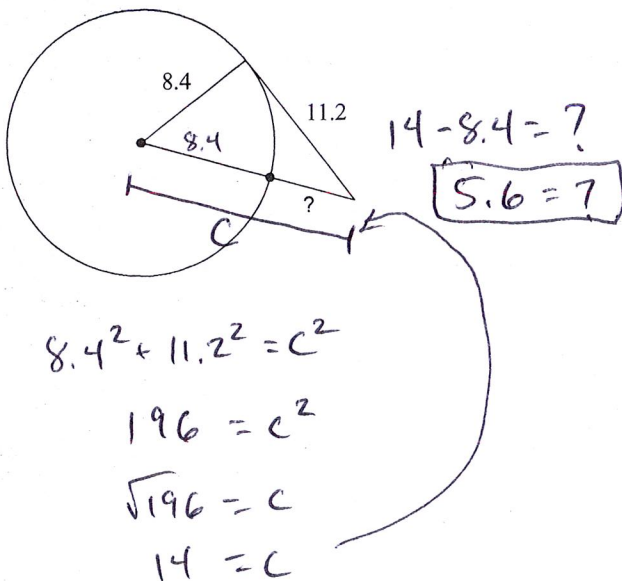 8.4
11.2
8.4
?
C
14 - 8.4 = ?
5.6 = ?
8.4² + 11.2² = C²
196 = C²
√196 = C
14 = C